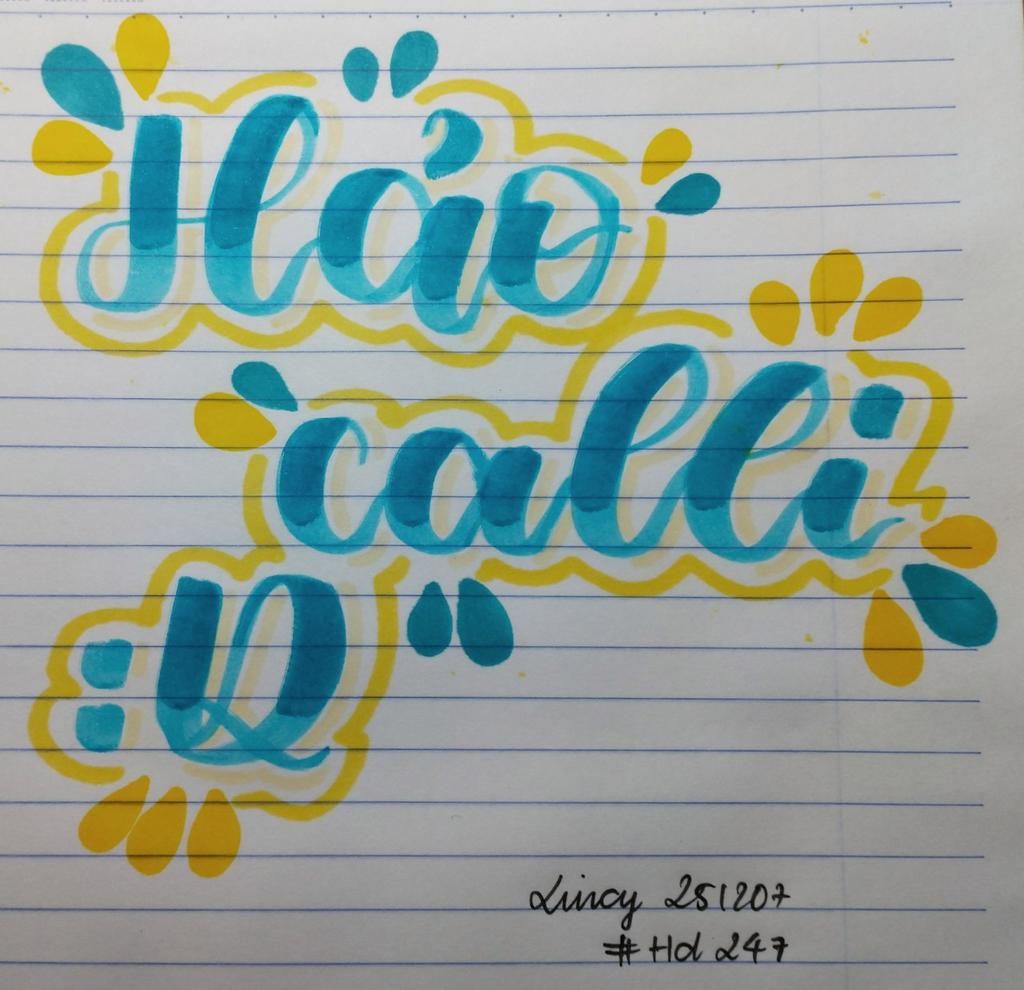 Hảo
calli
:D
Lincy 251207
#Hd 247